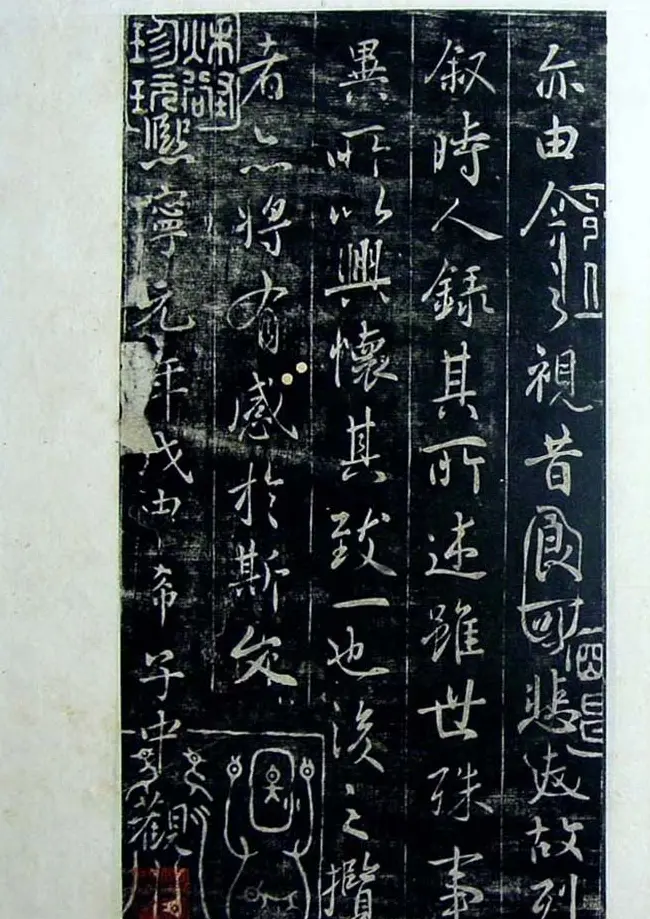 亦由今之視昔良可悲夫故列
叙時人錄其所述雖世殊事
異所以興懷其致一也後之攬
者亦將有感於斯文
秋壑珍玩
熙寧元年戊申希子中觀